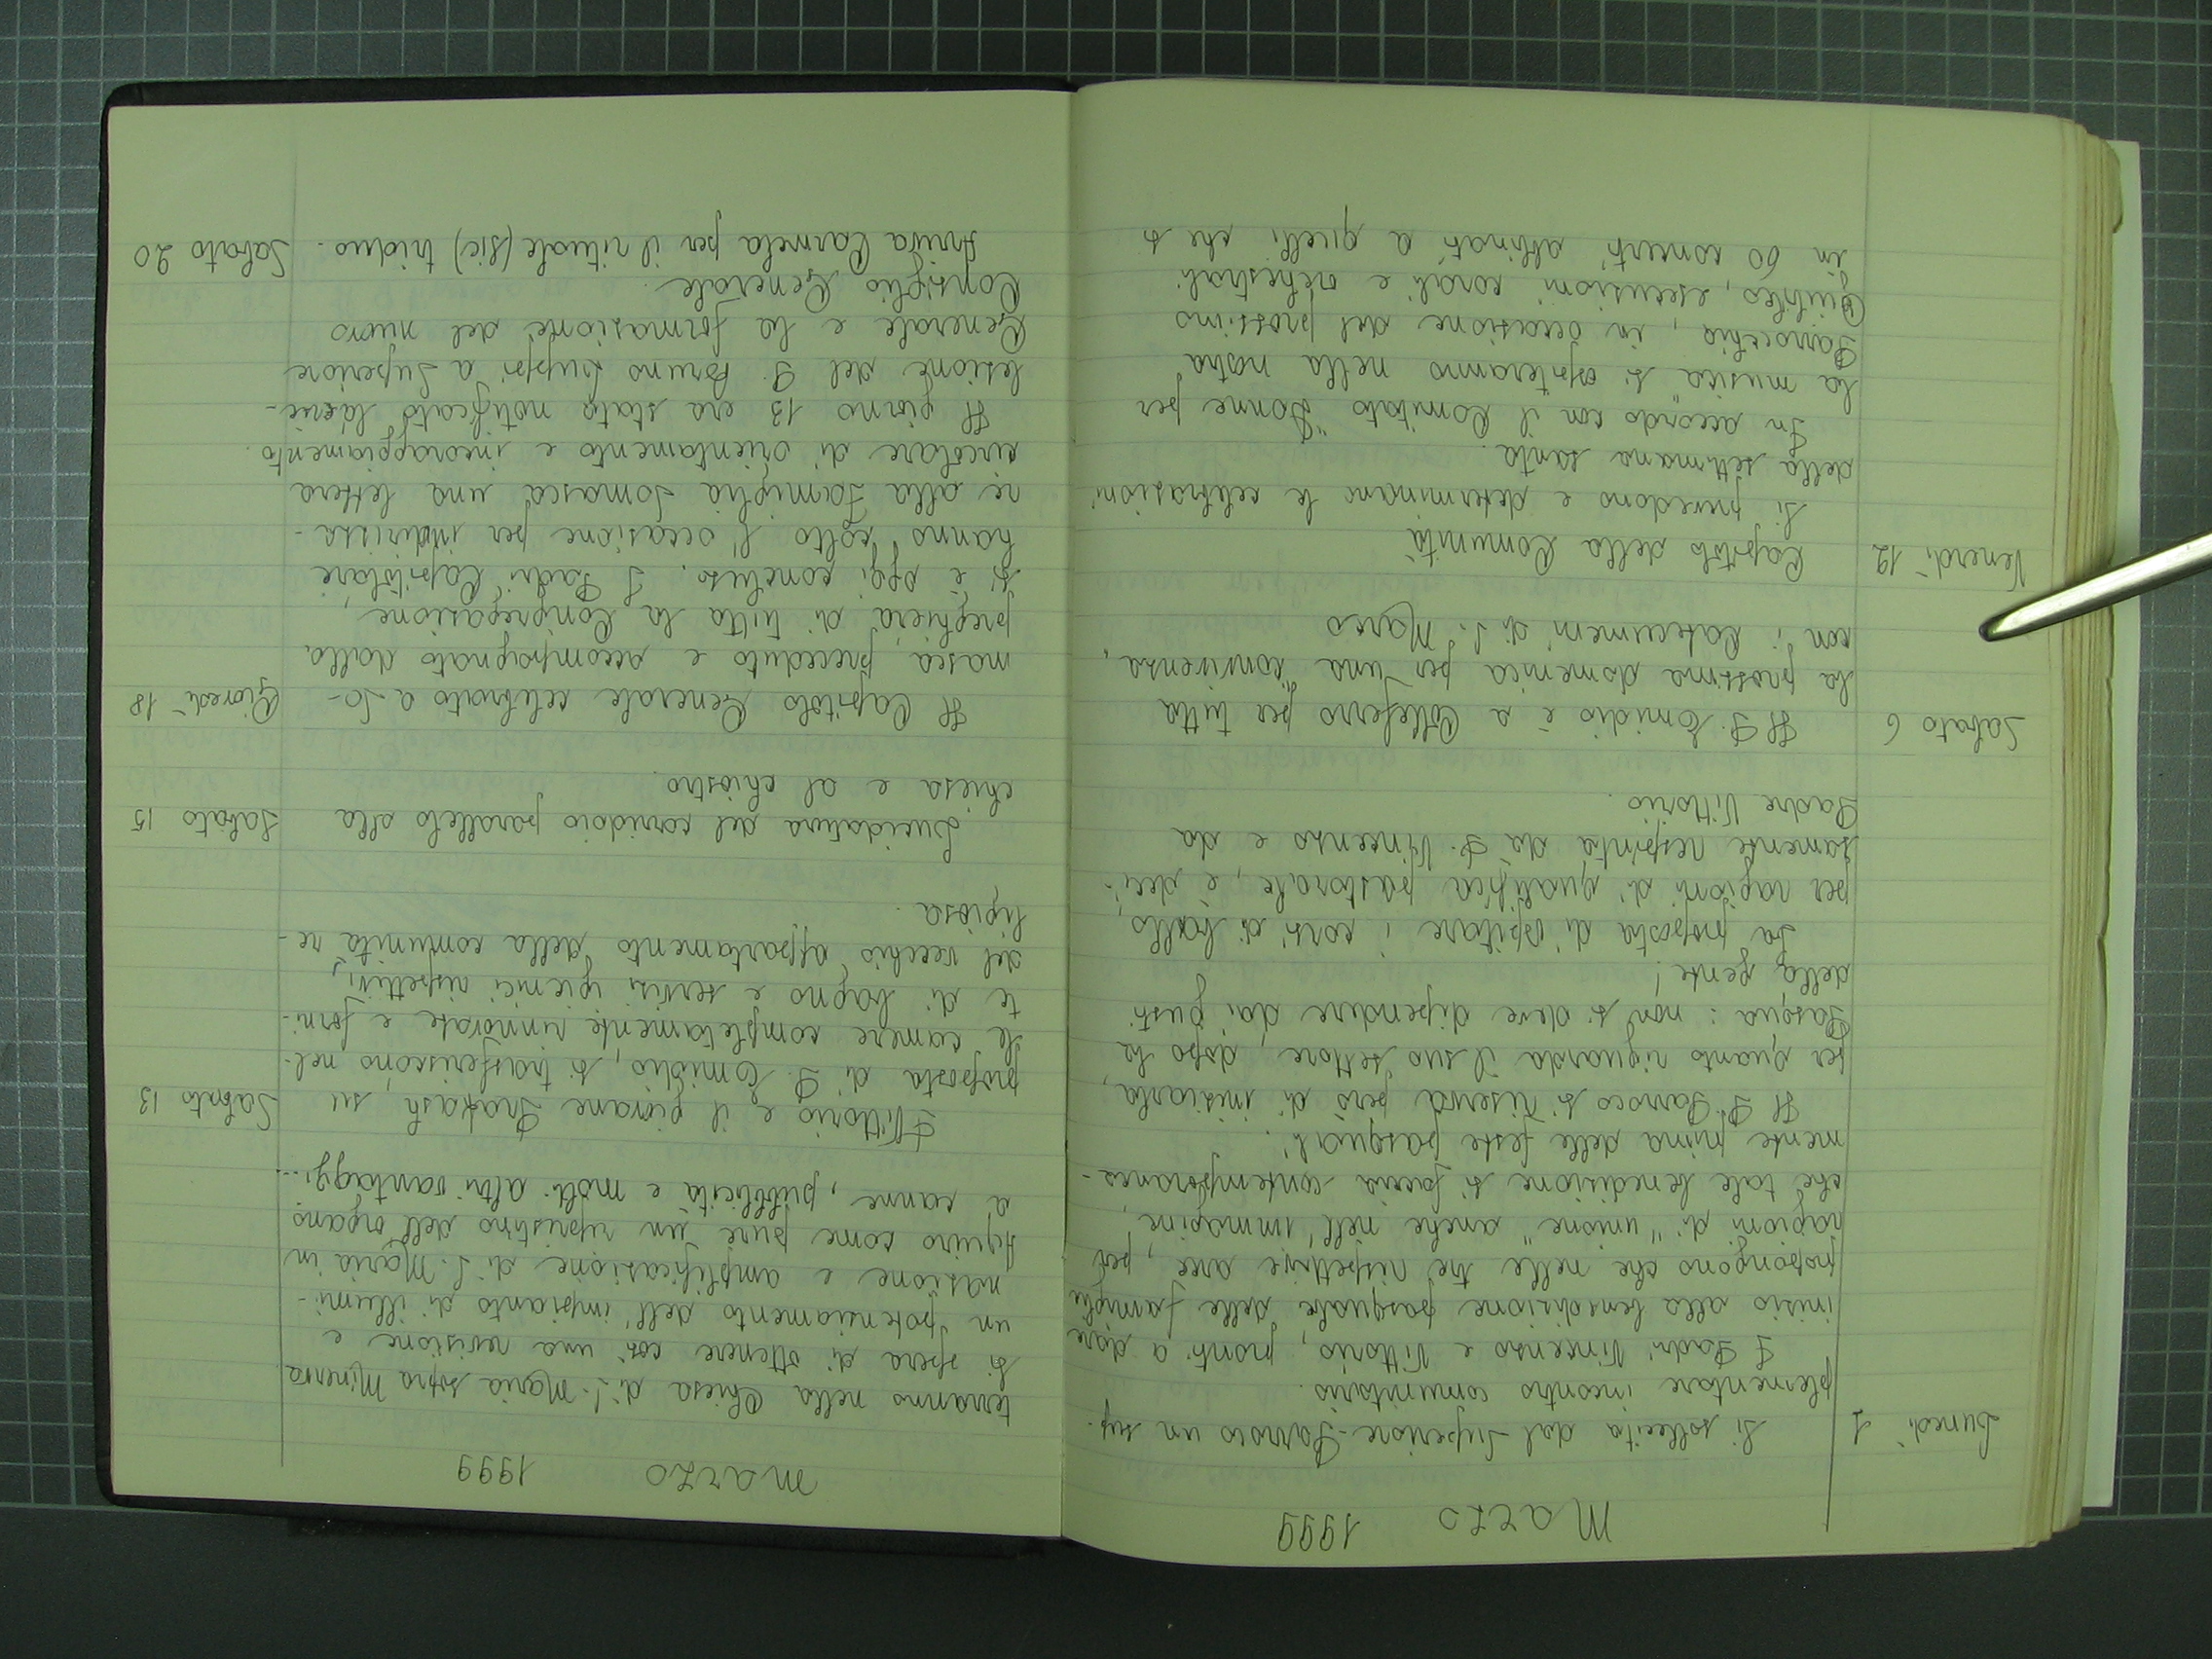 Marzo 1999
Lunedì 1 Si sollecita dal Superiore-Parroco un sup-
plementare incontro comunitario.
I Padri Vincenzo e Vittorio, pronti a dare
inizio alla benedizione pasquale delle famiglie
propongono che nelle tre rispettive aree, per
ragioni di "unione" anche nell'immagine,
che tale benedizione si faccia contemporanea-
mente prima delle feste pasquali.
Il P. Parroco si riserva però di iniziarla,
per quanto riguarda il suo settore, dopo la
Pasqua: non si deve dipendere dai gusti
della gente!
La proposta di ospitare i corsi di ballo,
per ragioni di qualifica pastorale, è deci-
samente respinta da P. Vincenzo e da
Padre Vittorio.
Sabato 6 Il P. Emidio è a Colleferro per tutta
la prossima domenica per una "convivenza,
con i Catecumeni di S. Marco
Venerdì 12 Capitolo della Comunità
Si prevedono e determinano le celebrazioni
della settimana santa.
In accordo con il Comitato "Donne per
la musica" si ospiteranno nella nostra
Parrocchia, in occasione del prossimo
Giubileo, esecuzioni corali e orchestrali
in 60 concerti abbinati a quelli che si
marzo 1999
terranno nella Chiesa di S. Maria sopra Minerva
Si spera di ottenere così una revisione e
un potenziamento dell'impianto di illumi-
nazione e amplificazione di S. Maria in
Aquiro come pure un ripristino dell'organo
a canne, pubblicità e molti altri vantaggi...
Sabato 13 P. Vittorio e il giovane Prakash su
proposta di P. Emidio, si trasferiscono nel-
le camere completamente rinnovate e forni-
te di bagno e servizi igienici rispettivi,
del vecchio appartamento della comunità re-
ligiosa.
Sabato 15 Lucidatura del corridoio parallelo alla
chiesa e al chiostro.
Giovedì 18 Il Capitolo Generale celebrato a So-
masca, preceduto e accompagnato dalla
preghiera di tutta la Congregazione,
si è oggi concluso. I Padri Capitolari,
hanno colto l'occasione per indirizza-
re alla Famiglia Somasca una lettera
circolare di orientamento e incoraggiamento.
Il giorno 13 era stata notificato la rie-
lezione del P. Bruno Luppi a Superiore
Generale e la formazione del nuovo
Consiglio Generale.
Sabato 20 Arriva Carmela per il rituale (sic) triduo.